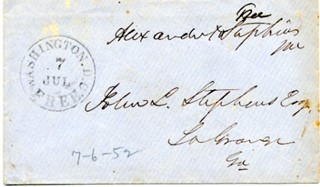 Free
Alexander H Stephens
mc
WASHINGTON D.C.
7
JUL
FREE
John L. Stephens Esq
La Grange
Ga
7-6-52